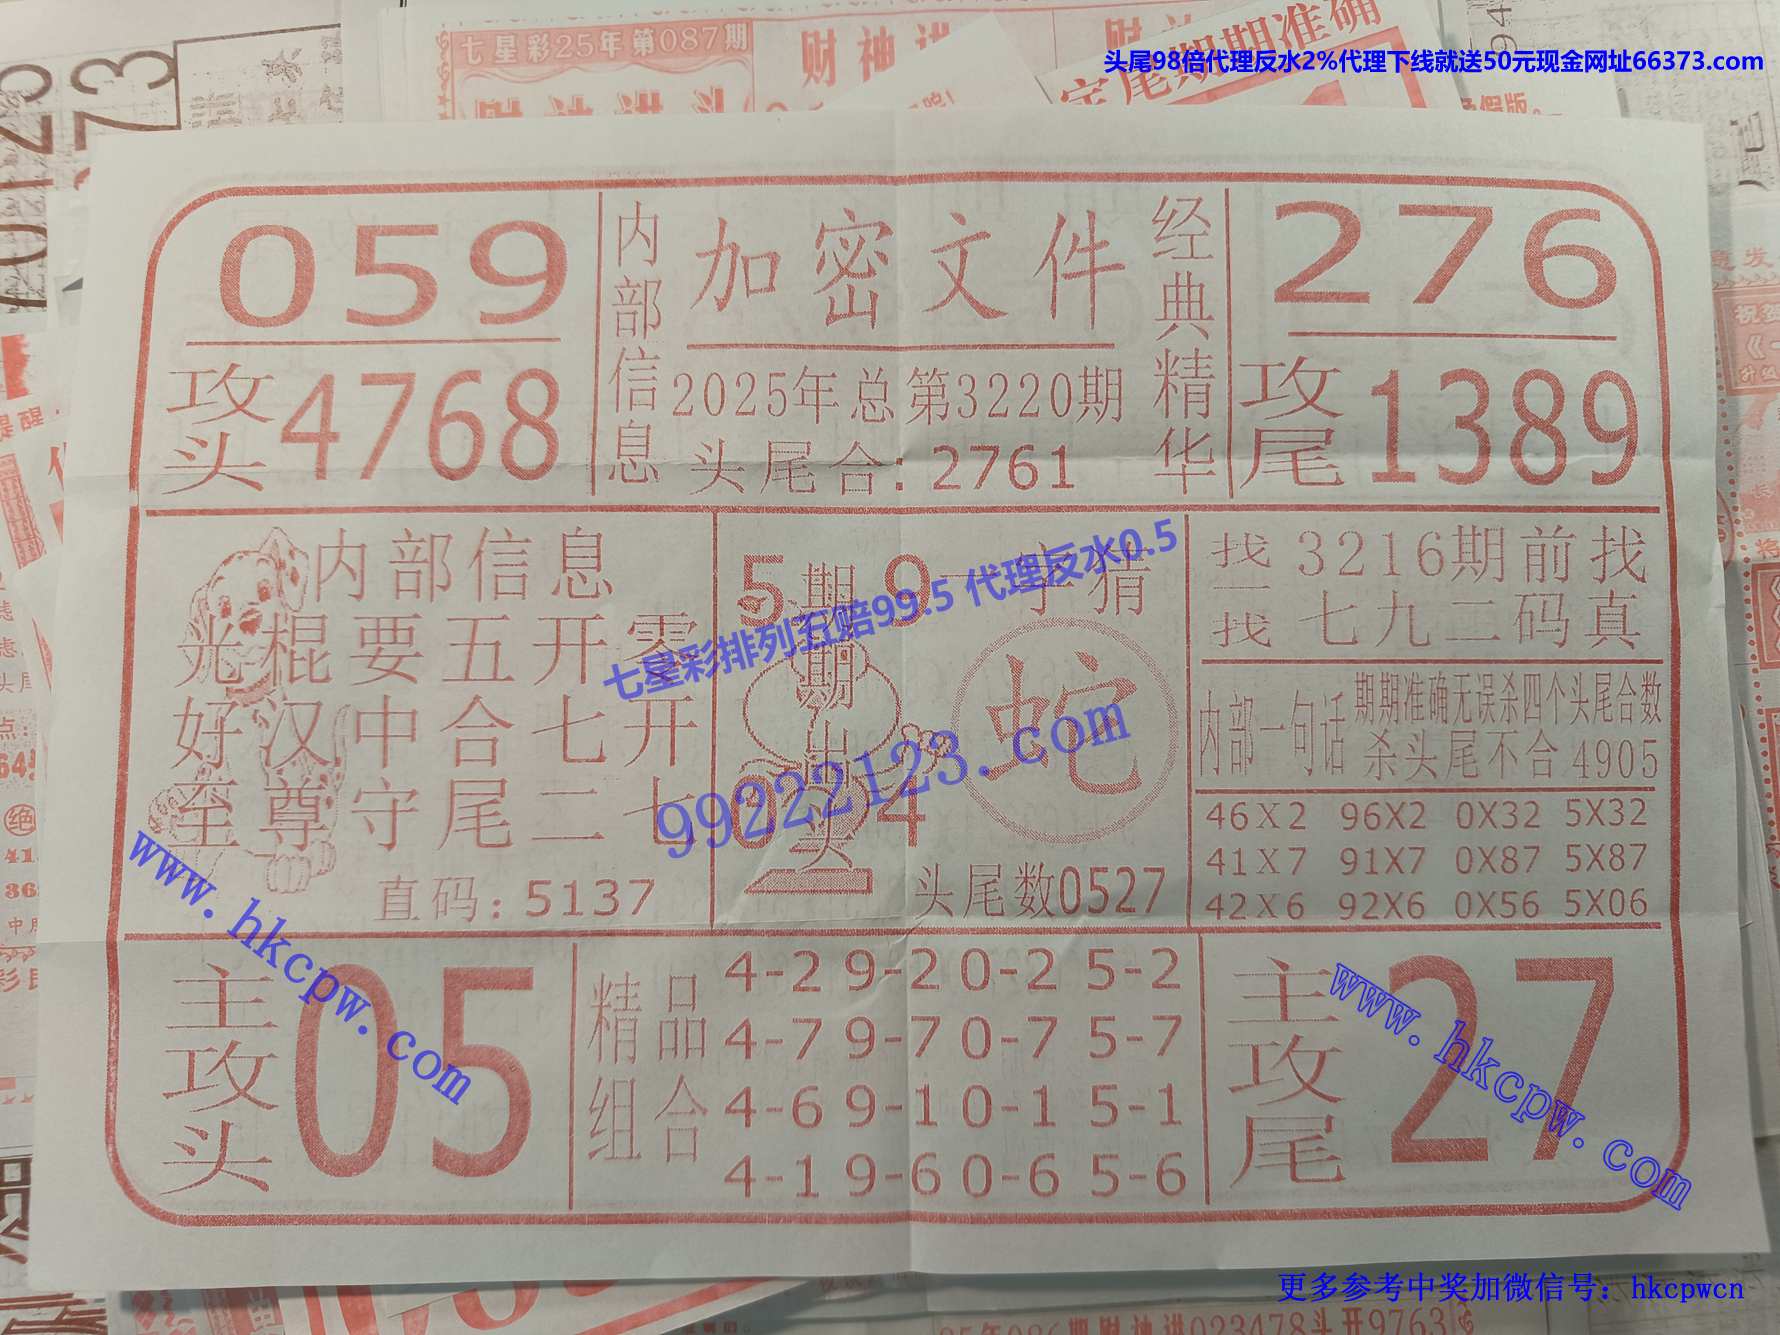 七星彩25年第087期
财神进
头尾98倍代理反水2%代理下线就送50元现金网址66373.com
059
攻头 4768
内部信息
加密文件
2025年总第3220期
头尾合：2761
经典精华
276
攻尾 1389
内部信息
光棍要五开零
好汉中合七开
至尊守尾二七
直码：5137
5 9
期期出
0 4
一字猜
蛇
头尾数0527
找一找
3216期前找
七九二码真
内部一句话
期期准确无误杀四个头尾合数
杀头尾不合4905
46X2 96X2 0X32 5X32
41X7 91X7 0X87 5X87
42X6 92X6 0X56 5X06
七星彩排列五赔99.5 代理反水0.5
99222123.com
www.hkcpw.com
主攻头 05
精品组合
4-2 9-2 0-2 5-2
4-7 9-7 0-7 5-7
4-6 9-1 0-1 5-1
4-1 9-6 0-6 5-6
主攻尾 27
www.hkcpw.com
更多参考中奖加微信号：hkcpwcn